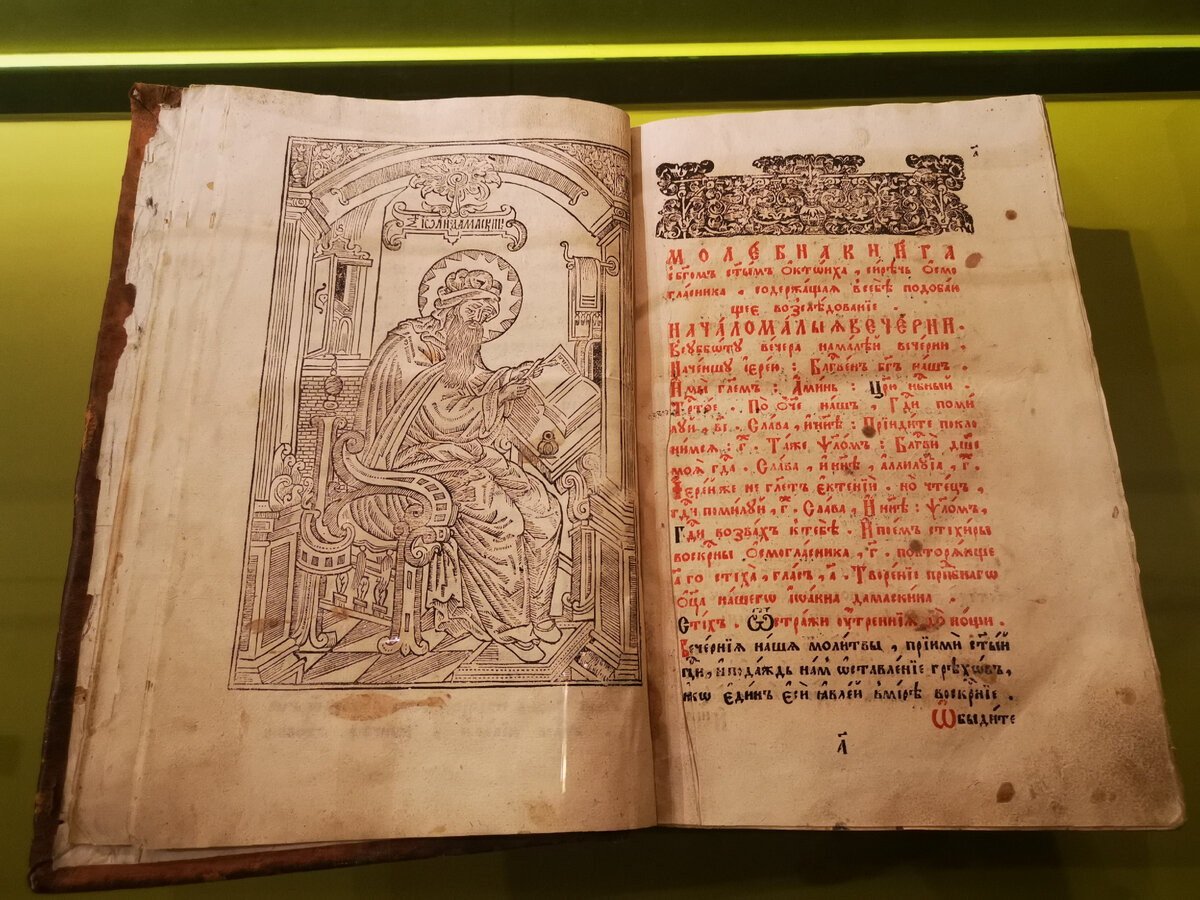 а҃
МОЛЕ́БНАКНИ́ГА
с̾бг҃омъ ст҃ы́мъ ѻ҆ктѡиха , си́рѣчь ѻ҆смо
гла́сника . содержа́щаѧ в̾себѣ̀ подоба́ю
щее возслѣ́дованїе
НАЧА́ЛОМА́ЛЫѦВЕЧЕ́РНИ .
Всꙋббѡ́тꙋ ве́чера нама́лѣй вече́рни .
Наче́ншꙋ і҆ере́ю : Блг҃ве́нъ бг҃ъ на́шъ .
И҆мы̀ гл҃емъ : А҆ми́нь : Цр҃ю̀ нбⷭ҇ныи .
Трⷭ҇то́е . По Ѻ҆́ч҃е на́шъ , Гдⷭ҇и поми́
лꙋй , в҃і . Сла́ва , и҆ны́нѣ : Прїиди́те покло
ни́мсѧ : г҃ . Та́же ѱало́мъ : Блг҃вѝ дш҃е
моѧ̀ гдⷭ҇а . Сла́ва , и҆ н҃нѣ , а҆ллилꙋ́їа , г҃ .
І҆ере́йже не гл҃етъ є҆ктенїѝ . но чте́цъ ,
гдⷭ҇и поми́лꙋй , г҃ . Сла́ва , И҆ н҃нѣ : ѱало́мъ ,
Гдⷭ҇и воззва́хъ к̾тебѣ̀ . И҆пое́мъ стихи́ры
воскрⷭ҇ны ѻ҆смогла́сника , г҃ . повторѧ́юще
а҃ го стиха̀ , гла́съ , а҃ . Творе́нїе прпⷣбнагѡ
ѻ҆ц҃а̀ на́шегѡ і҆ѡа́нна дамаски́на .
Сти́хъ . Ѿстра́жи ᲂу҆́треннїѧ до но́щи .
Вече́рнїѧ на́шѧ моли́твы , прїимѝ ст҃ы́й
гдⷭ҇и , и҆пода́ждь на́мъ ѡ҆ставле́нїе грѣхѡ́въ ,
ꙗ҆́кѡ є҆ди́нъ є҆сѝ ꙗ҆вле́й в̾ми́рѣ воскрⷭ҇нїе .
Ѡ҆быди́те
а҃